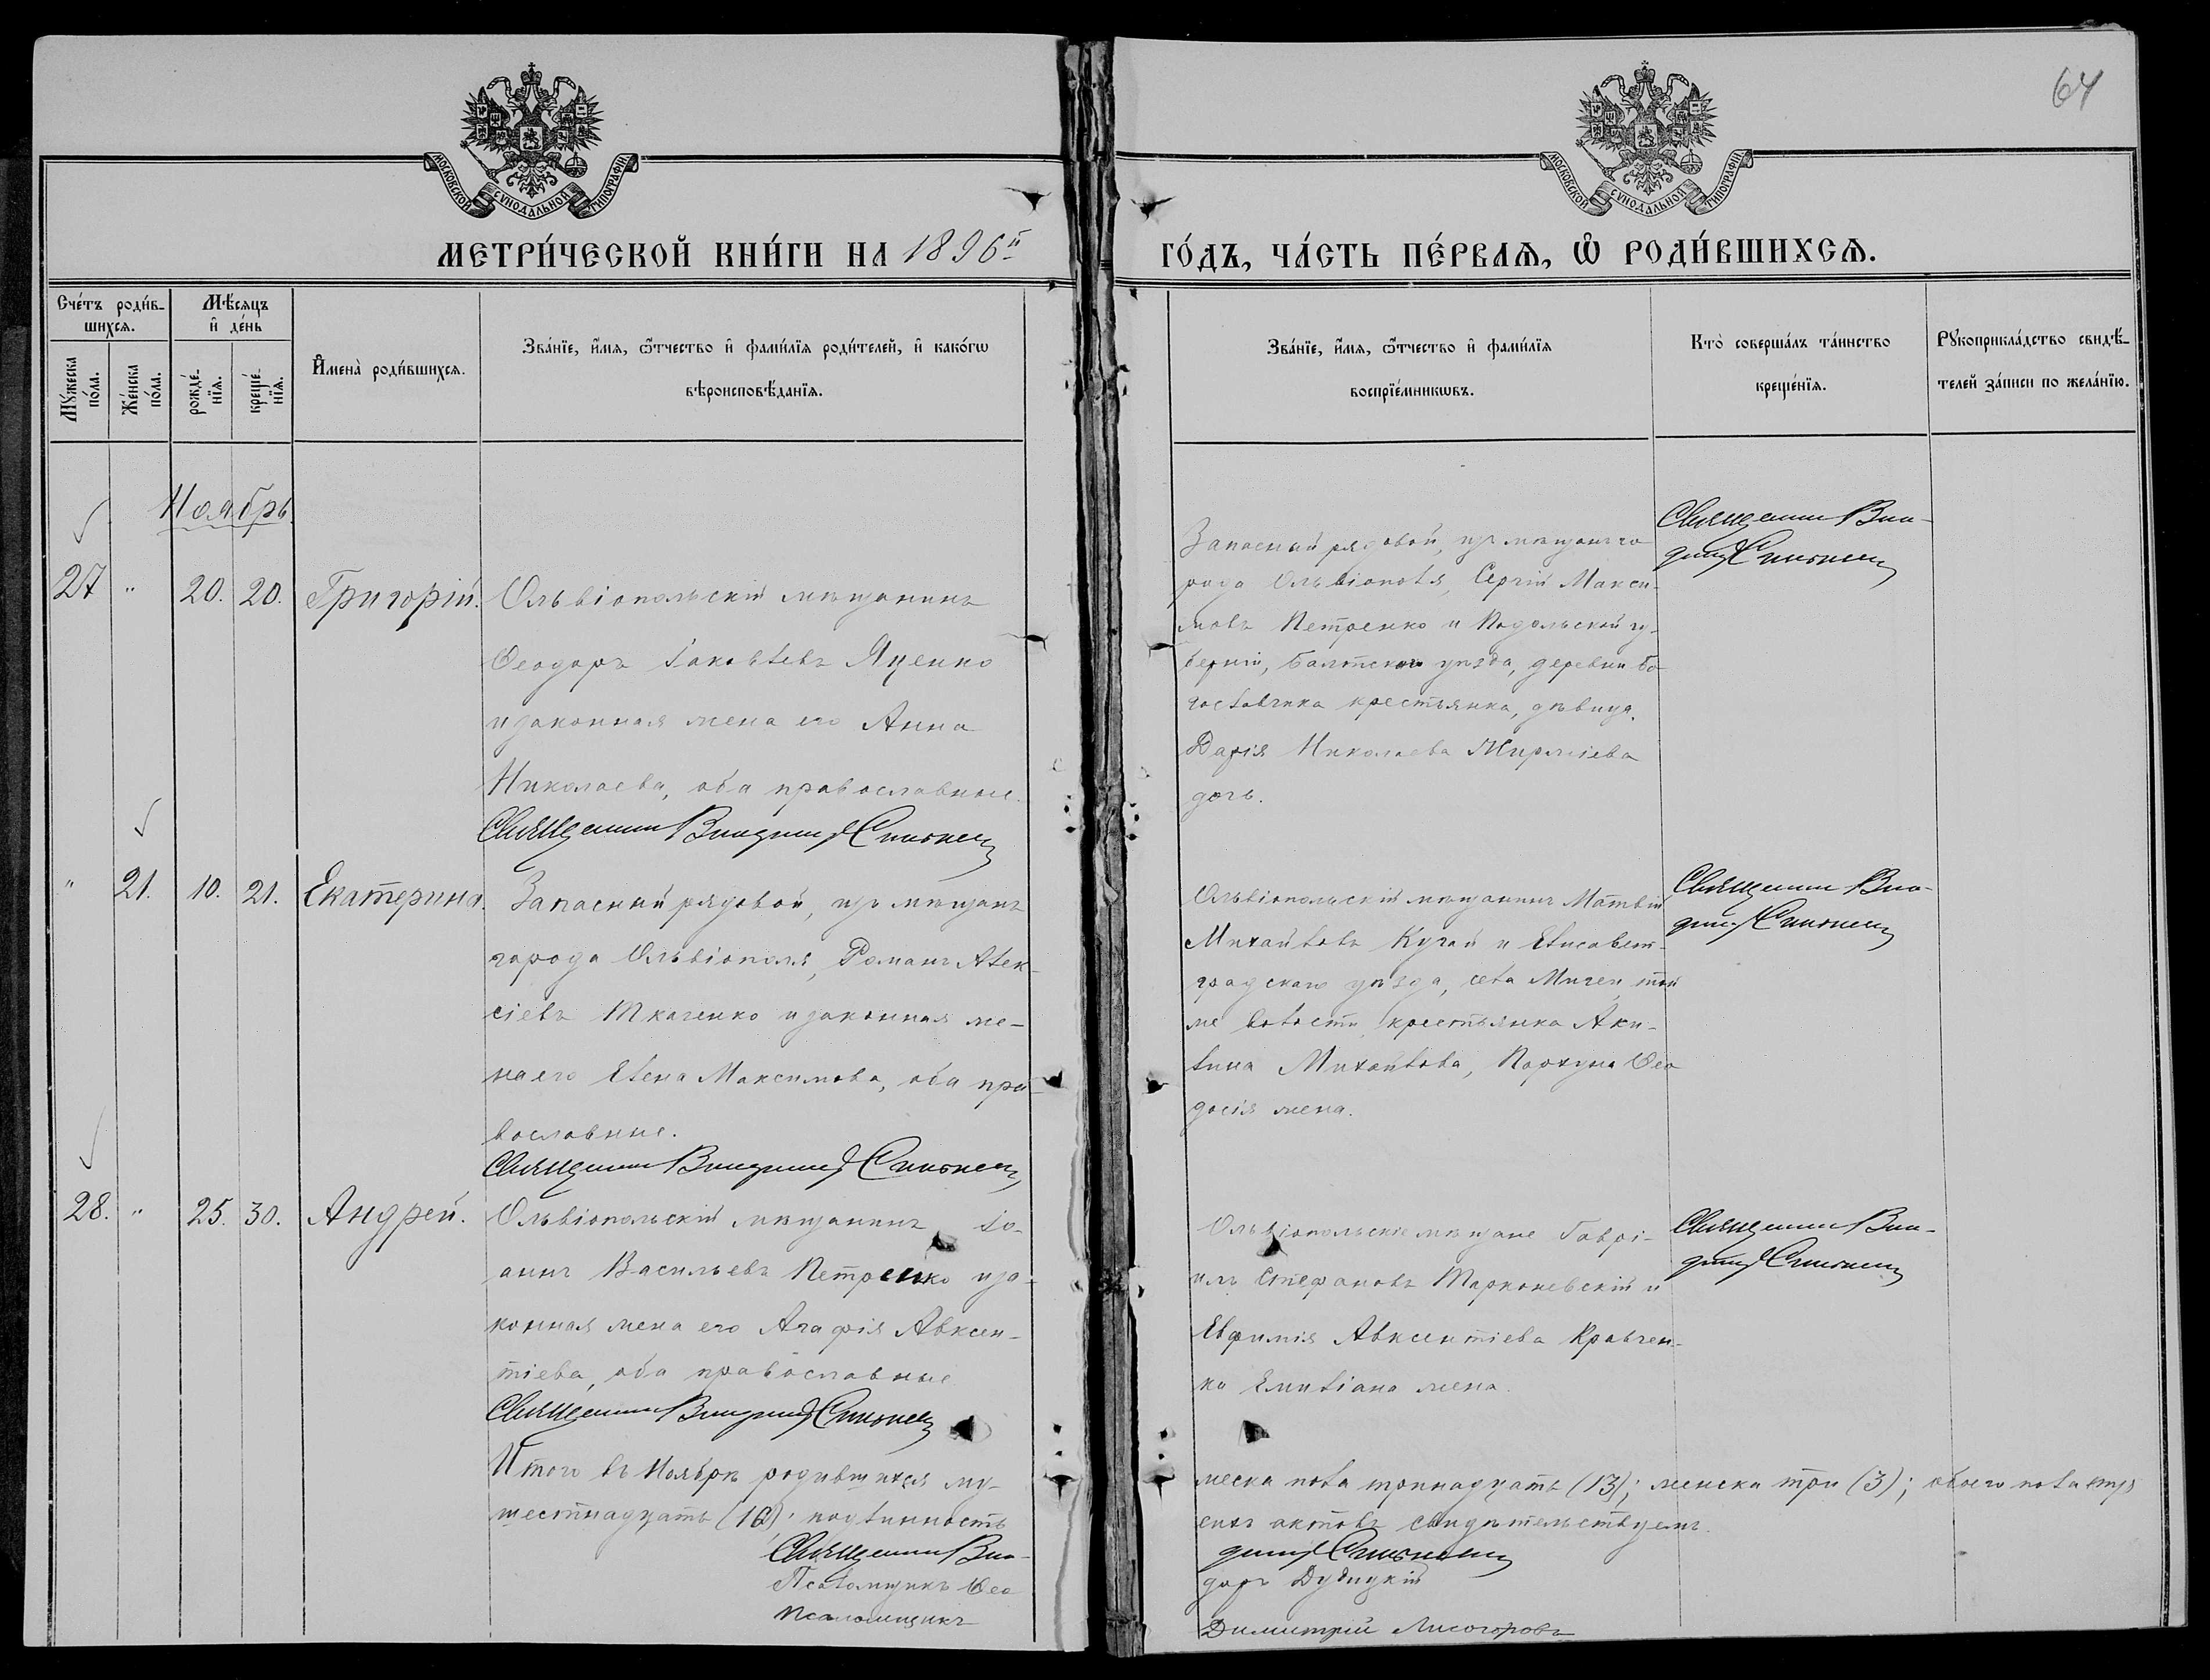 64
МОСКОВСКОЙ СУНОДАЛЬНОЙ ТИПОГРАФІИ
МОСКОВСКОЙ СУНОДАЛЬНОЙ ТИПОГРАФІИ
МЕТРИ́ЧЕСКОЙ КНИ́ГИ НА 1896й
ГО́ДЪ, ЧА́СТЬ ПЕ́РВАѦ, Ѡ РОДИ́ВШИХСѦ.
Сче́тъ роди́в-
шихсѧ.
Мѣ́сѧцъ
и де́нь
Мꙋ́жеска по́ла.
Же́нска по́ла.
рожде́нїѧ.
креще́нїѧ.
Имена̀ роди́вшихсѧ.
Зва́нїе, и́мѧ, ѻ́тчество и фами́лїѧ роди́телей, и како́гѡ
вѣроисповѣ́данїѧ.
Зва́нїе, и́мѧ, ѻ́тчество и фами́лїѧ
воспрїе́мникѡвъ.
Кто̀ соверша́лъ та́инство
креще́нїѧ.
Рꙋкоприкла́дство свидѣ́-
телей за́писи по жела́нїю.
Ноябрь.
27 " 20. 20. Григорій.
Ольвіопольскій мѣщанинъ
Ѳеодоръ Іаковлевъ Яценко
и законная жена его Анна
Николаева, оба православные.
Священникъ Владиміръ
Запасный рядовой, изъ мѣщанъ го
рода Ольвіополя, Сергій Макси-
мовъ Петренко и Подольской гу-
берніи, Балтскаго уѣзда, деревни Бо
гословки крестьянка, дѣвица
Дарія Николаева
дочь.
Священникъ Вла-
диміръ
" 21. 10. 21. Екатерина.
Запасный рядовой, изъ мѣщанъ
города Ольвіополя, Романъ Алек-
сіевъ Ткаченко и законная же-
на его Елена Максимова, оба пра-
вославные.
Священникъ Владиміръ
Ольвіопольскій мѣщанинъ Матвій
Михайловъ Кугай и Елисавет-
градскаго уѣзда, села Мигеи, той
же волости, крестьянка Аки-
лина Михайлова, Пархуна Ѳео
досія жена.
Священникъ Вла-
диміръ
28. " 25. 30. Андрей.
Ольвіопольскій мѣщанинъ Іо-
аннъ Васильевъ Петренко и за-
конная жена его Агафія Авксен-
тіева, оба православные
Священникъ Владиміръ
Ольвіопольскіе мѣщане Гаврі-
илъ Стефановъ Марконевскій и
Евфимія Авксентіева Кравчен-
ко Емиліана жена.
Священникъ Вла-
диміръ
Итого въ Ноябрѣ родившихся му-
жеска пола тринадцать (13); женска три (3); обоего пола
шестнадцать (16); подлинность
сихъ актовъ свидѣтельствуемъ.
Священникъ Вла-
диміръ
Псаломщикъ Ѳео
доръ Дубицкій
Псаломщикъ
Димитрій Лисогоровъ